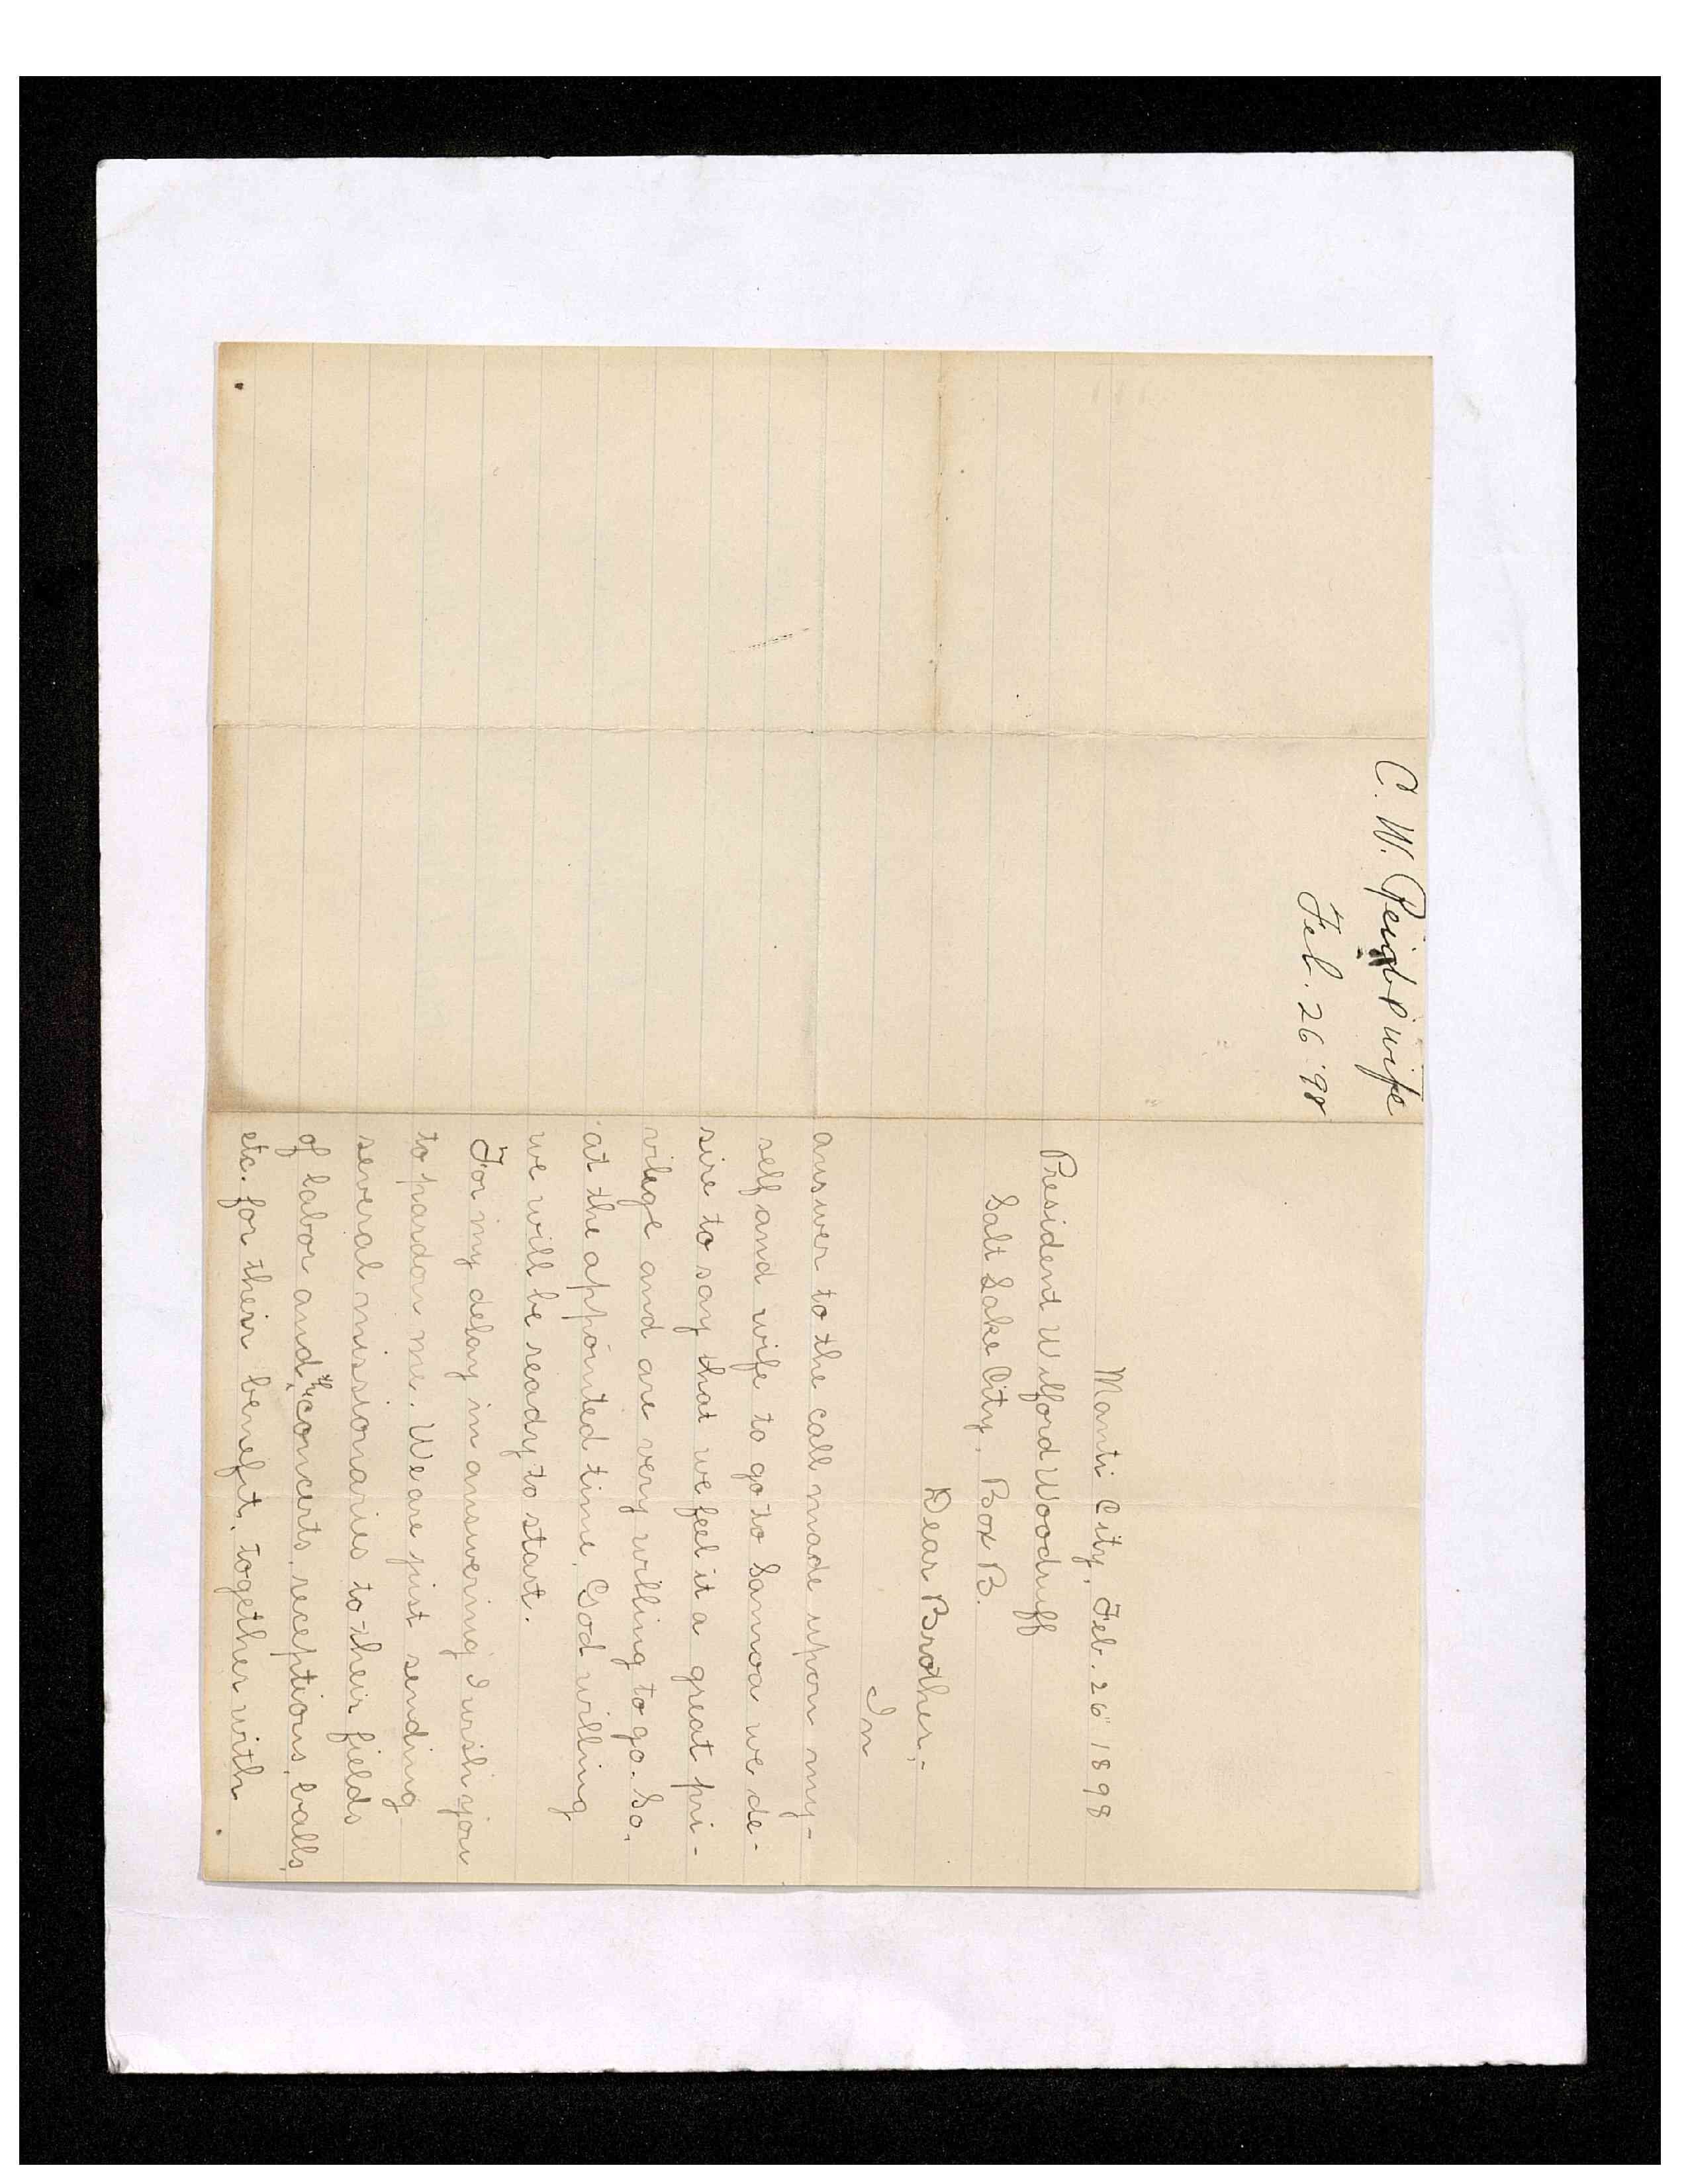 C. W. Peid & wife
Feb. 26 '98
Manti City, Feb. 26" 1898
President Wilford Woodruff
Salt Lake City, Box B.
Dear Brother,-
In
answer to the call made upon my-
self and wife to go to Samoa we de-
sire to say that we feel it a great pri-
vilege and are very willing to go. So,
at the appointed time, God willing
we will be ready to start.
For my delay in answering I wish you
to pardon me. We are just sending
several missionaries to their fields
of labor and the concerts, receptions, balls,
etc. for their benefit, together with